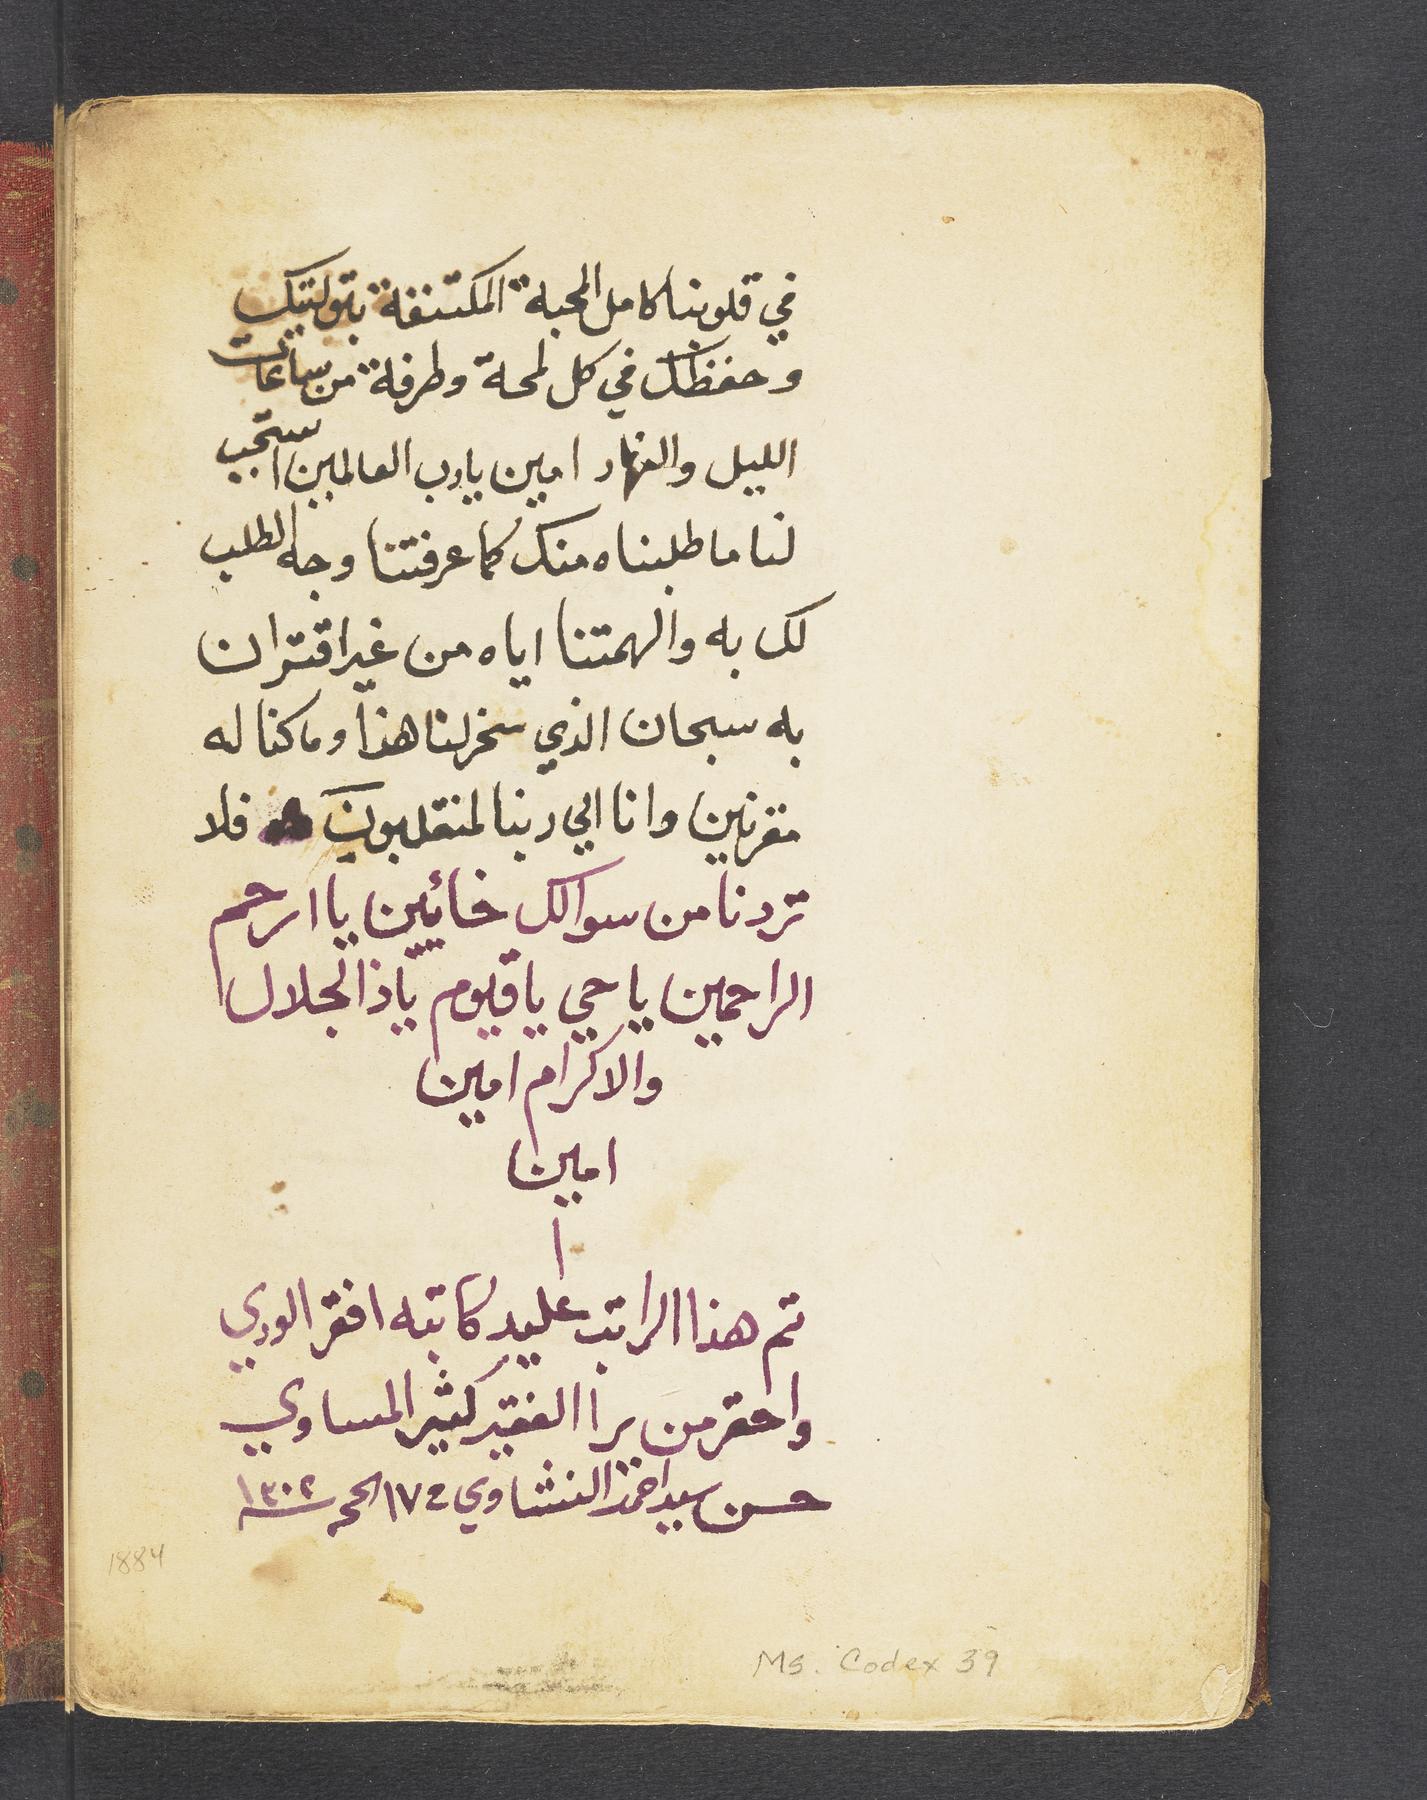 في قلوبنا كامل المحبة المكتنفة بتوليتك
وحفظك في كل لمحة وطرفة من ساعات
الليل والنهار امين يارب العالمين استجب
لنا ما طلبناه منك كما عرفتنا وجه الطلب
لك به والهمتنا اياه من غير اقتران
به سبحان الذي سخر لنا هذا وما كنا له
مقرنين وانا الي ربنا لمنقلبون فلا
تردنا من سوالك خائبين يا ارحم
الراحمين يا حي يا قيوم يا ذا الجلال
والاكرام امين
امين
ا
تم هذا الراتب علي يد كاتبه افقر الوري
واحقر من يرا الفقير كثير المساوي
حسن سيد احمد النشاوي ١٧ الحجه سنه ١٣٠٢
1884
Ms. Codex 39